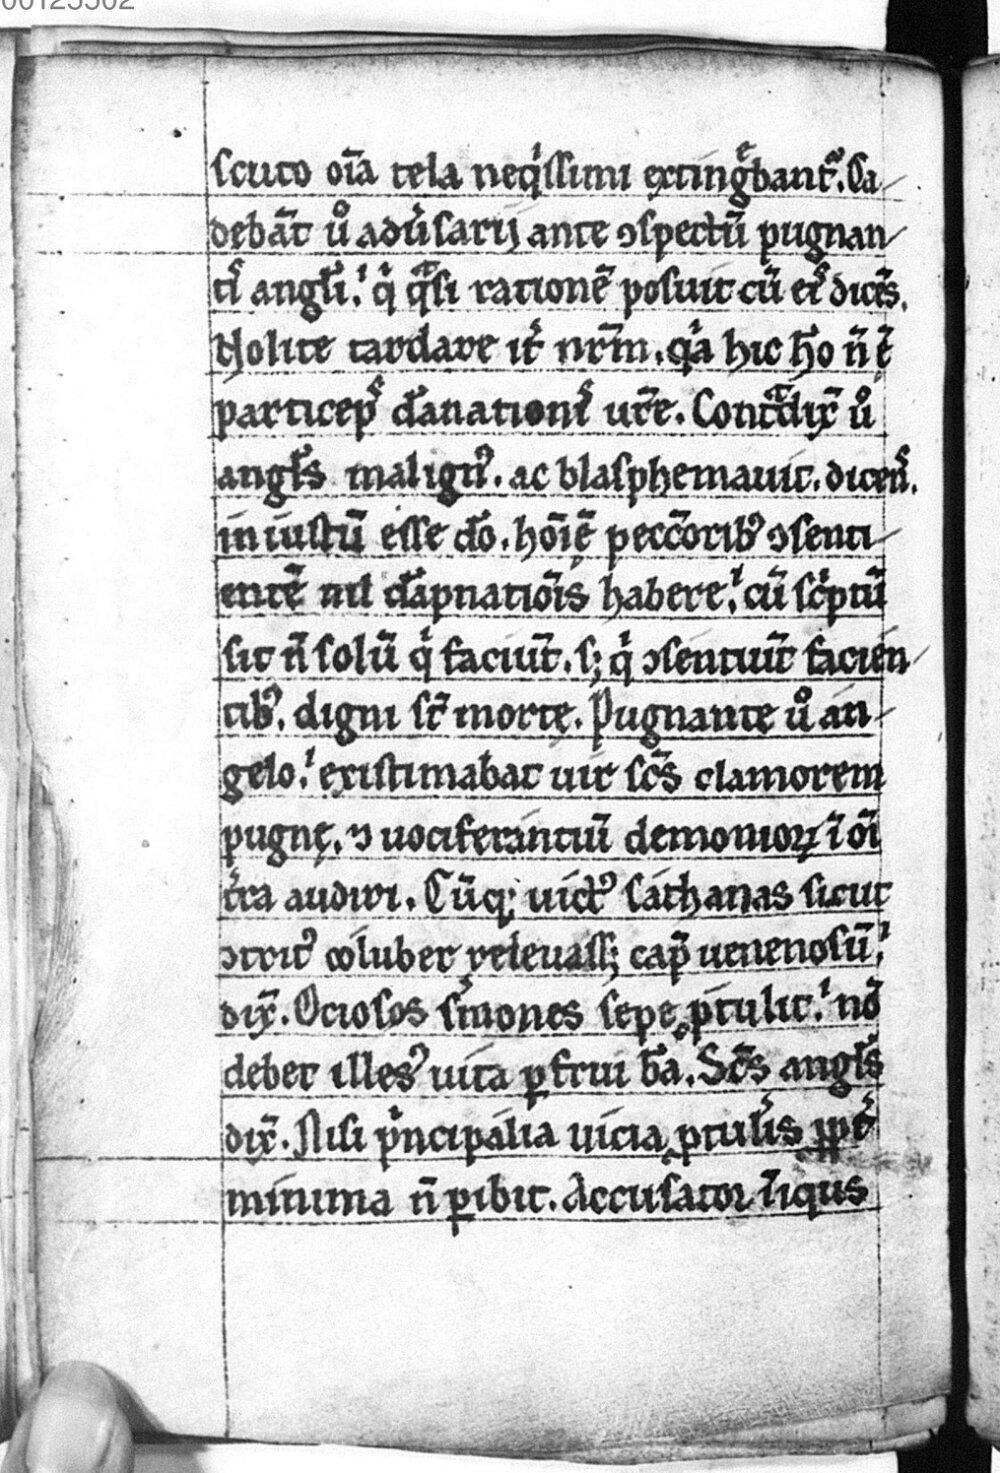 scuto oīa tela neqͥssimi extingͤbant᷑. Ca-
debāt ů aduͥsarij ante ꝯspectū pugnan-
tͥs angłi. qͥ qͣsi rationē posuit cū eiͥs dicēs.
Nolite tardare it᷑ nr̄m. qͣa hic hō n̄ ē
particepͥs dānationͥs ur̄e. Contͣdix̄ ů
angłs malignꝰ. ac blasphemauit. dicen̄s.
iniustū esse dō. hoīē pecc̄oribꝫ ꝯsenti-
entē nil dāpnatiōis habere. cū scͥptū
sit n̄ solū qͥ faciūt. sꝫ qͥ ꝯsentiūt facien-
tibꝫ. digni st̄ morte. Pugnante ů an-
gelo. existimabat uir sc̄s clamorem
pugnę. ⁊ uociferantiū demonioꝝ ī oī
t᷑ra audiri. Cūqꝫ uictꝰ sathanas sicut
ꝯtritꝰ coluber releuassꝫ cap̄ uenenosū.
dix̄. Ociosos s᷑mones sepe ꝓtulit. nō
debet illesꝰ uita ꝑfrui b̄a. Sc̄s angłs
dix̄. Nisi pͥncipalia uicia ꝓtul᷑is ꝓpt᷑
minima n̄ ꝑibit. Accusator īiqus